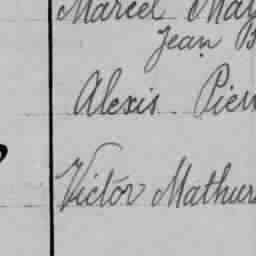 Marcel May
Jean B
Alexis Pier
Victor Mathur